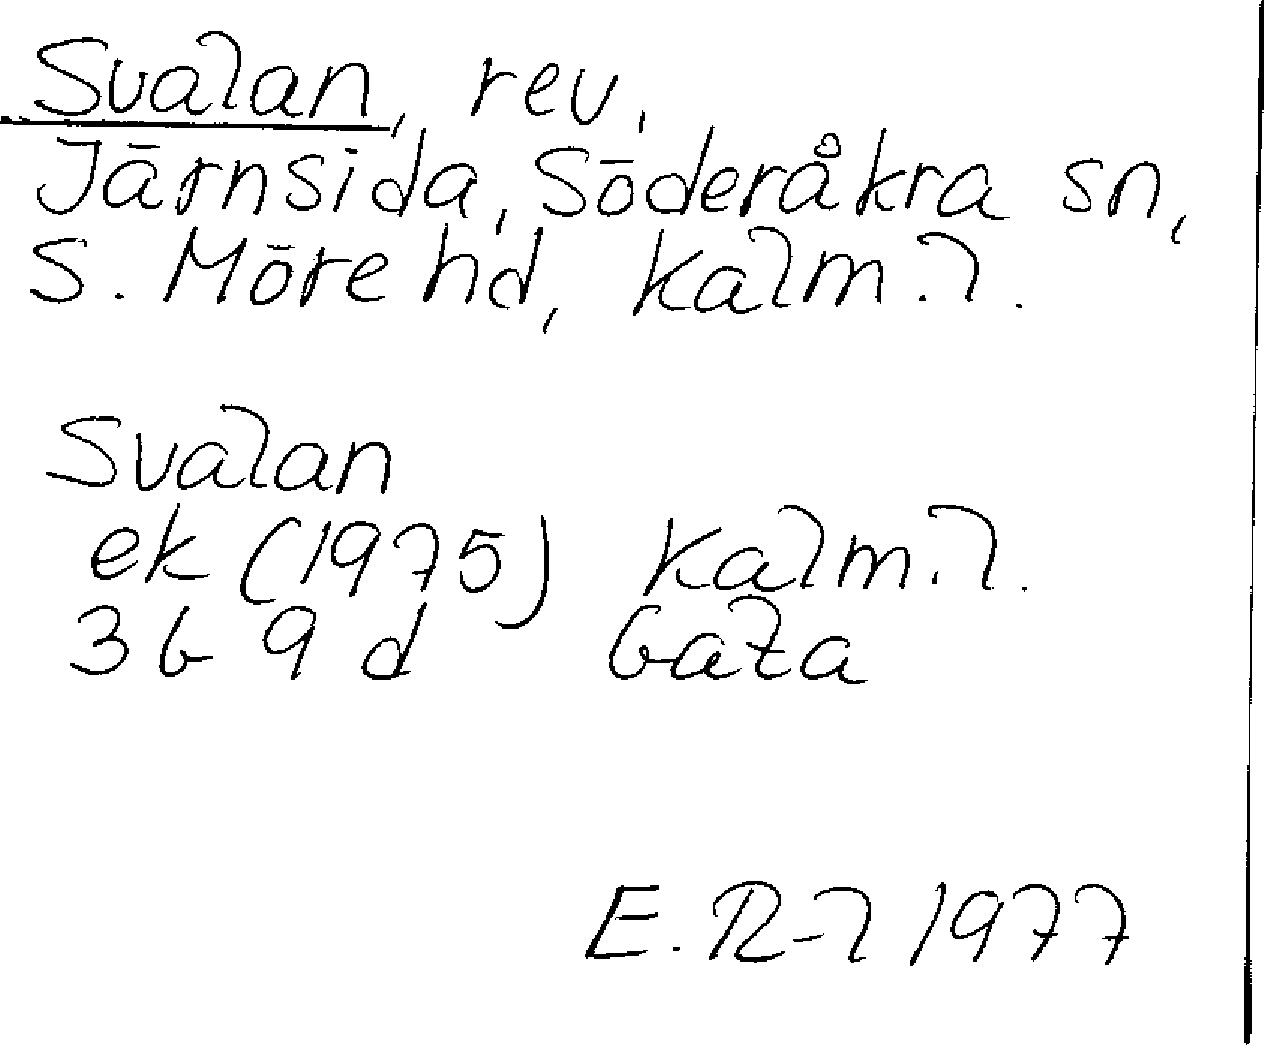 Svalan, rev,
Järnsida, Söderåkra sn,
S. Möre hd, Kalm. l.
Svalan
ek (1975) Kalm. l.
3 G 9 d Gata
E. R-l 1977